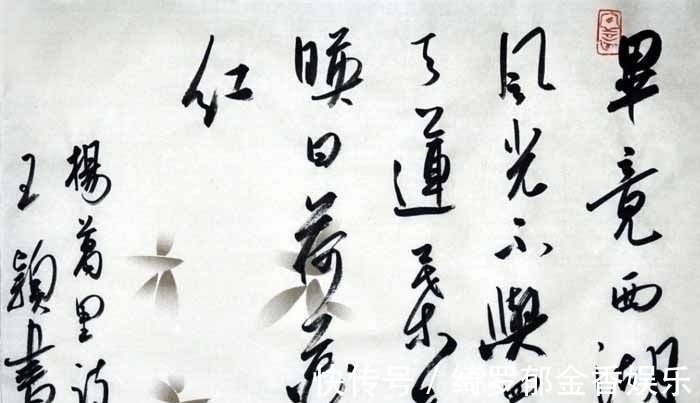 畢竟西湖
風光不與
天蓮葉
暎日荷花
紅
楊萬里詩
王穎書
快传号 / 绮罗郁金香娱乐